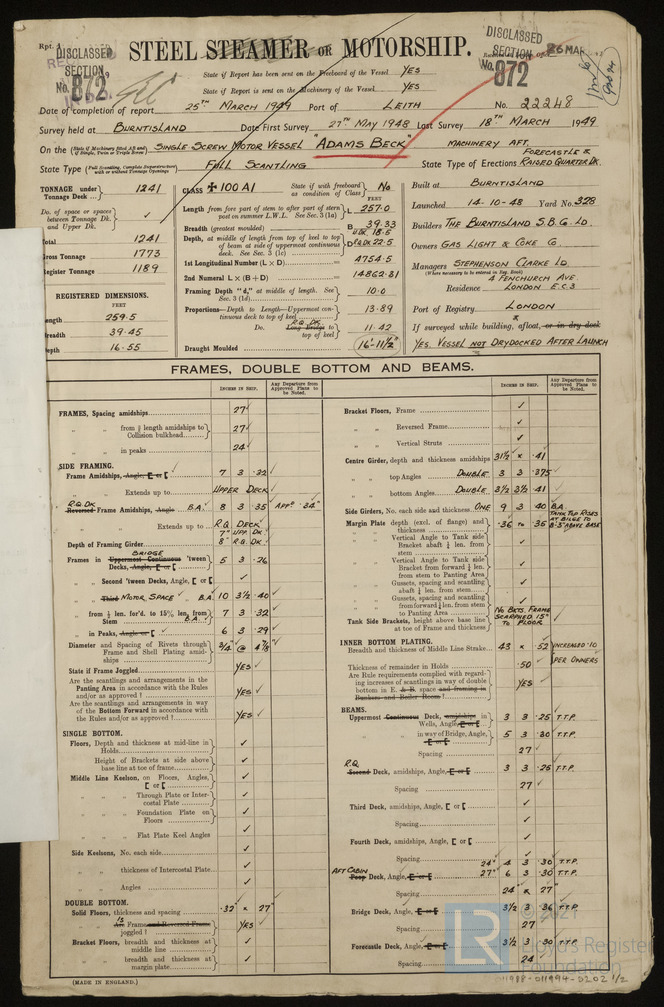 Rpt. 4
DISCLASSED
SECTION,
No. 872
STEEL STEAMER OR MOTORSHIP.
DISCLASSED
SECTION
No. 872
26 MAR
State if Report has been sent on the Freeboard of the Vessel YES
State if Report is sent on the Machinery of the Vessel YES
Date of completion of report 25TH MARCH 1949 Port of LEITH No. 22248
Survey held at BURNTISLAND Date First Survey 27TH MAY 1948 Last Survey 18TH MARCH 1949
On the (State if Machinery fitted Aft and if Single, Twin or Triple Screw) SINGLE SCREW MOTOR VESSEL "ADAMS BECK" MACHINERY AFT.
State Type (Full Scantling, Complete Superstructure with or without Tonnage Openings) FULL SCANTLING State Type of Erections FORECASTLE & RAISED QUARTER DK.
TONNAGE under Tonnage Deck 1241
Do. of space or spaces between Tonnage Dk. and Upper Dk. ✓
Total 1241
Gross Tonnage 1773
Register Tonnage 1189
REGISTERED DIMENSIONS.
FEET
Length 259.5
Breadth 39.45
Depth 16.55
CLASS ✠ 100 A1 State if with freeboard as condition of Class No
FEET
Length from fore part of stem to after part of stern post on summer L.W.L. See Sec. 3 (1a) L 257.0
Breadth (greatest moulded) B 39.33
Depth, at middle of length from top of keel to top of beam at side of uppermost continuous deck. See Sec. 3 (1c) D U.DK. 18.5 R.Q.DK 22.5
1st Longitudinal Number (L × D) = 4754.5
2nd Numeral L × (B + D) = 14862.81
Framing Depth "d," at middle of length. See Sec. 3 (1d) 10.0
Proportions—Depth to Length—Uppermost continuous deck to top of keel 13.89
Do. R.Q. DK. Long Bridge to top of keel 11.42
Draught Moulded 16'-11½"
Built at BURNTISLAND
Launched 14-10-48 Yard No. 328
Builders THE BURNTISLAND S.B. Co LD
Owners GAS LIGHT & COKE Co.
Managers STEPHENSON CLARKE LD
(Where necessary to be entered in Reg. Book)
Residence 4 FENCHURCH AVE. LONDON E.C.3
Port of Registry LONDON
If surveyed while building, afloat, or in dry dock
YES. VESSEL NOT DRYDOCKED AFTER LAUNCH
FRAMES, DOUBLE BOTTOM AND BEAMS.
INCHES IN SHIP. Any Departure from Approved Plans to be Noted.
FRAMES, Spacing amidships 27 ✓
" " from ⅗ length amidships to Collision bulkhead 27 ✓
" " in peaks 24 ✓
SIDE FRAMING.
Frame Amidships, Angle, [ or [ 7 3 .32 ✓
" " Extends up to UPPER DECK ✓
R.Q. DK Reversed Frame Amidships, Angle B.A. 8 3 .35 ✓ APPD .34"
" " Extends up to R.Q. DECK ✓
Depth of Framing Girder 7" UPP. DK. 8" R.Q. DK.
Frames in BRIDGE Uppermost Continuous 'tween Decks, Angle, [ or [ 5 3 .26
" " Second 'tween Decks, Angle, [ or [ ✓
" " Third MOTOR SPACE B.A. 10 3½ .40 ✓
" from ⅕ len. for'd. to 15% len. from Stem B.A. 7 3 .32 ✓
" in Peaks, Angle or [ 6 3 .29 ✓
Diameter and Spacing of Rivets through Frame and Shell Plating amidships ¾" @ 4⅞" ✓
State if Frame Joggled YES ✓
Are the scantlings and arrangements in the Panting Area in accordance with the Rules and/or as approved? YES ✓
Are the scantlings and arrangements in way of the Bottom Forward in accordance with the Rules and/or as approved? YES ✓
SINGLE BOTTOM.
Floors, Depth and thickness at mid-line in Holds ✓
" Height of Brackets at side above base line at toe of frame ✓
Middle Line Keelson, on Floors, Angles, [ or [ ✓
" " Through Plate or Intercostal Plate ✓
" " Foundation Plate on Floors ✓
" " Flat Plate Keel Angles ✓
Side Keelsons, No. each side ✓
" " thickness of Intercostal Plate ✓
" " Angles ✓
DOUBLE BOTTOM.
Solid Floors, thickness and spacing .32 × 27"
" " Is Are Frame and Reversed Frame joggled? YES ✓
Bracket Floors, breadth and thickness at middle line ✓
" " breadth and thickness at margin plate ✓
INCHES IN SHIP. Any Departure from Approved Plans to be Noted.
Bracket Floors, Frame ✓
" " Reversed Frame ✓
" " Vertical Struts ✓
Centre Girder, depth and thickness amidships 31½ × .41
" " top Angles DOUBLE 3 3 .375 ✓
" " bottom Angles DOUBLE 3½ 3½ .41 ✓
Side Girders, No. each side and thickness ONE 9 3 .40 B.A.
Margin Plate depth (excl. of flange) and thickness .36 to .35 TANK TOP RISES AT BILGE TO 8'-3" ABOVE BASE
" " Vertical Angle to Tank side Bracket abaft ¼ len. from stem ✓
" " Vertical Angle to Tank side Bracket from forward ¼ len. from stem to Panting Area ✓
" " Gussets, spacing and scantling abaft ¼ len. from stem ✓
" " Gussets, spacing and scantling from forward ¼ len. from stem to Panting Area ✓
Tank Side Brackets, height above base line at toe of Frame and thickness NO BKTS. FRAME SCARPHED 15" TO FLOOR
INNER BOTTOM PLATING.
Breadth and thickness of Middle Line Strake 43 × .52 INCREASED .10
Thickness of remainder in Holds .50 ✓ PER OWNERS
Are Rule requirements complied with regarding increases of scantlings in way of double bottom in E. & B. space and framing in Bunkers and Boiler Room? YES ✓
BEAMS.
Uppermost Continuous Deck, amidships in Wells, Angle, [ or [ 3 3 .25 T.T.P.
" " in way of Bridge, Angle, [ or [ 5 3 .30 T.T.P.
Spacing 27 ✓
R.Q. Second Deck, amidships, Angle, [ or [ 3 3 .25 T.T.P.
Spacing 27 ✓
Third Deck, amidships, Angle, [ or [ ✓
Spacing ✓
Fourth Deck, amidships, Angle, [ or [ ✓
Spacing ✓
AFT CABIN Poop Deck, Angle, [ or [ 24" 4 3 .30 T.T.P.
27" 6 3 .30 T.T.P.
Spacing 24" × 27"
Bridge Deck, Angle, [ or [ 3½ 3 .36 T.T.P.
Spacing 27
Forecastle Deck, Angle, [ or [ 3½ 3 .30 T.T.P.
Spacing 24
(MADE IN ENGLAND.)
© 2021
LR
Lloyd's Register
Foundation
011988-011994-0202 1/2